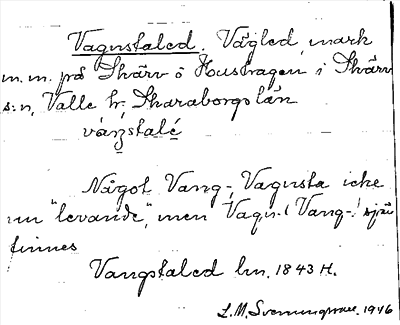 Vagnstaled. Vägled, mark
m.m. på Skärv o Hushagen, i Skärv
s:n, Valle hr, Skaraborgs län
Något Vang-, Vagnsta icke
nu "levande", men Vagn- (Vang-)
finnes
Vangstaled lm. 1843 H.
L.M. Svenungsson. 1946